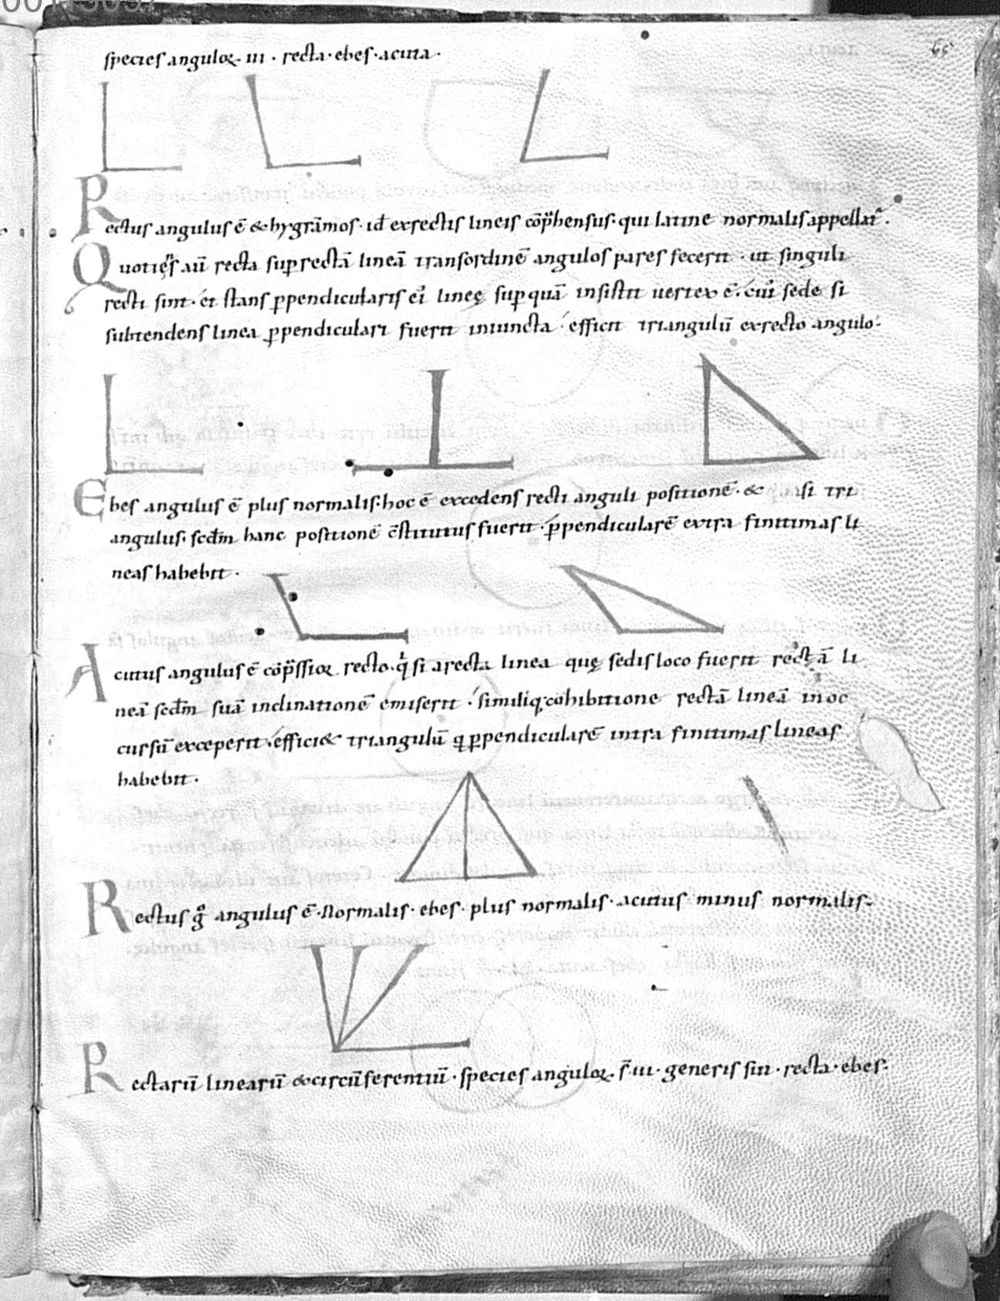 species anguloꝝ· III · recta · ebes · acuta ·
Rectus angulus ē & hygrāmos · id ex rectis lineis cōp̄hensus · qui latine normalis appellat̄ ·
Quotiēs aū recta sup rectā lineā transordinē angulos pares fecerit · ut singuli
recti sint · et stans ꝑpendicularis ei lineę sup quā insistit uertex ē · cui sede si
subtendens linea ꝑpendiculari fuerit iniuncta efficit triangulū ex recto angulo ·
Ebes angulus ē plus normalis · hoc ē excedens recti anguli positionē · & si tri
angulus scdm hanc positionē c̄stitutus fuerit · ꝑpendicularē extra finitimas li
neas habebit ·
Acutus angulus ē cōp̄ssioꝝ recto · qͥ si a recta linea quę sedis loco fuerit rectā li
neā scdm suā inclinationē emiserit · similiq; cohibitione rectā lineā in oc
cursū exceperit · effici& triangulū q ꝑpendicularē intra finitimas lineas
habebit ·
Rectus gͦ angulus ē · Normalis · ebes · plus normalis · acutus minus normalis ·
Rectarū linearū & circūferentiū · species anguloꝝ · III · generis sin · recta · ebes ·